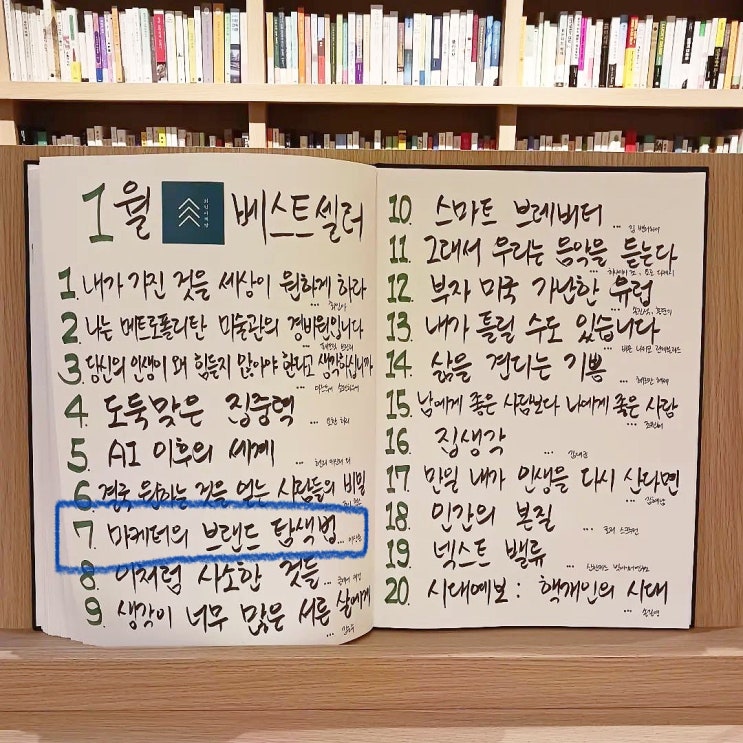 1월 베스트셀러
1. 내가 가진 것을 세상이 원하게 하라
... 최인아
2. 나는 메트로폴리탄 미술관의 경비원입니다
3. 당신의 인생이 왜 힘들지 않아야 한다고 생각하십니까
4. 도둑맞은 집중력
... 요한 하리
5. AI 이후의 세계
6. 결국 원하는 것을 얻는 사람들의 비밀
7. 마케터의 브랜드 탐색법
8. 이처럼 사소한 것들
9. 생각이 너무 많은 서른 살에게
10. 스마트 브레비티
11. 그래서 우리는 음악을 듣는다
12. 부자 미국 가난한 유럽
13. 내가 틀릴 수도 있습니다
14. 삶을 견디는 기쁨
... 헤르만 헤세
15. 남에게 좋은 사람보다 나에게 좋은 사람
16. 집생각
17. 만일 내가 인생을 다시 산다면
... 김혜남
18. 인간의 본질
... 로저 스크루턴
19. 넥스트 밸류
20. 시대예보: 핵개인의 시대
... 송길영